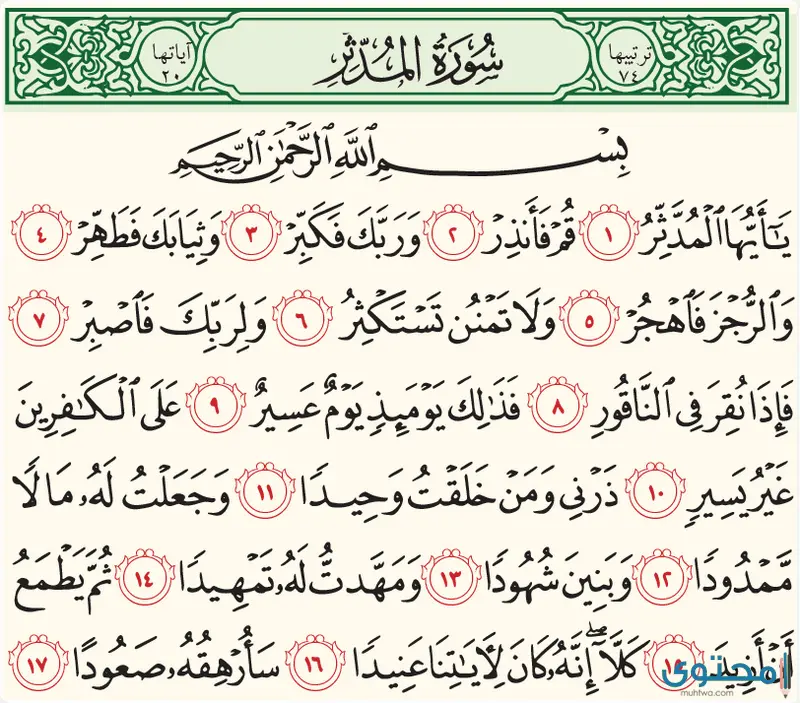 ترتيبها ٧٤ سُورَةُ المُدَّثِّرِ آياتها ٢٠
بِسۡمِ ٱللَّهِ ٱلرَّحۡمَٰنِ ٱلرَّحِيمِ
يَٰٓأَيُّهَا ٱلۡمُدَّثِّرُ ١ قُمۡ فَأَنذِرۡ ٢ وَرَبَّكَ فَكَبِّرۡ ٣ وَثِيَابَكَ فَطَهِّرۡ ٤
وَٱلرُّجۡزَ فَٱهۡجُرۡ ٥ وَلَا تَمۡنُن تَسۡتَكۡثِرُ ٦ وَلِرَبِّكَ فَٱصۡبِرۡ ٧
فَإِذَا نُقِرَ فِي ٱلنَّاقُورِ ٨ فَذَٰلِكَ يَوۡمَئِذٖ يَوۡمٌ عَسِيرٌ ٩ عَلَى ٱلۡكَٰفِرِينَ
غَيۡرُ يَسِيرٖ ١٠ ذَرۡنِي وَمَنۡ خَلَقۡتُ وَحِيدٗا ١١ وَجَعَلۡتُ لَهُۥ مَالٗا
مَّمۡدُودٗا ١٢ وَبَنِينَ شُهُودٗا ١٣ وَمَهَّدتُّ لَهُۥ تَمۡهِيدٗا ١٤ ثُمَّ يَطۡمَعُ
أَنۡ أَزِيدَ ١٥ كَلَّآۖ إِنَّهُۥ كَانَ لِأٓيَٰتِنَا عَنِيدٗا ١٦ سَأُرۡهِقُهُۥ صَعُودًا ١٧
محتوى
muhtwa.com